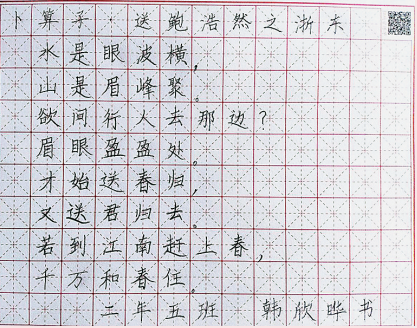 卜算子·送鲍浩然之浙东
水是眼波横，
山是眉峰聚。
欲问行人去那边？
眉眼盈盈处。
才始送春归，
又送君归去。
若到江南赶上春，
千万和春住。
二年五班 韩欣晔书